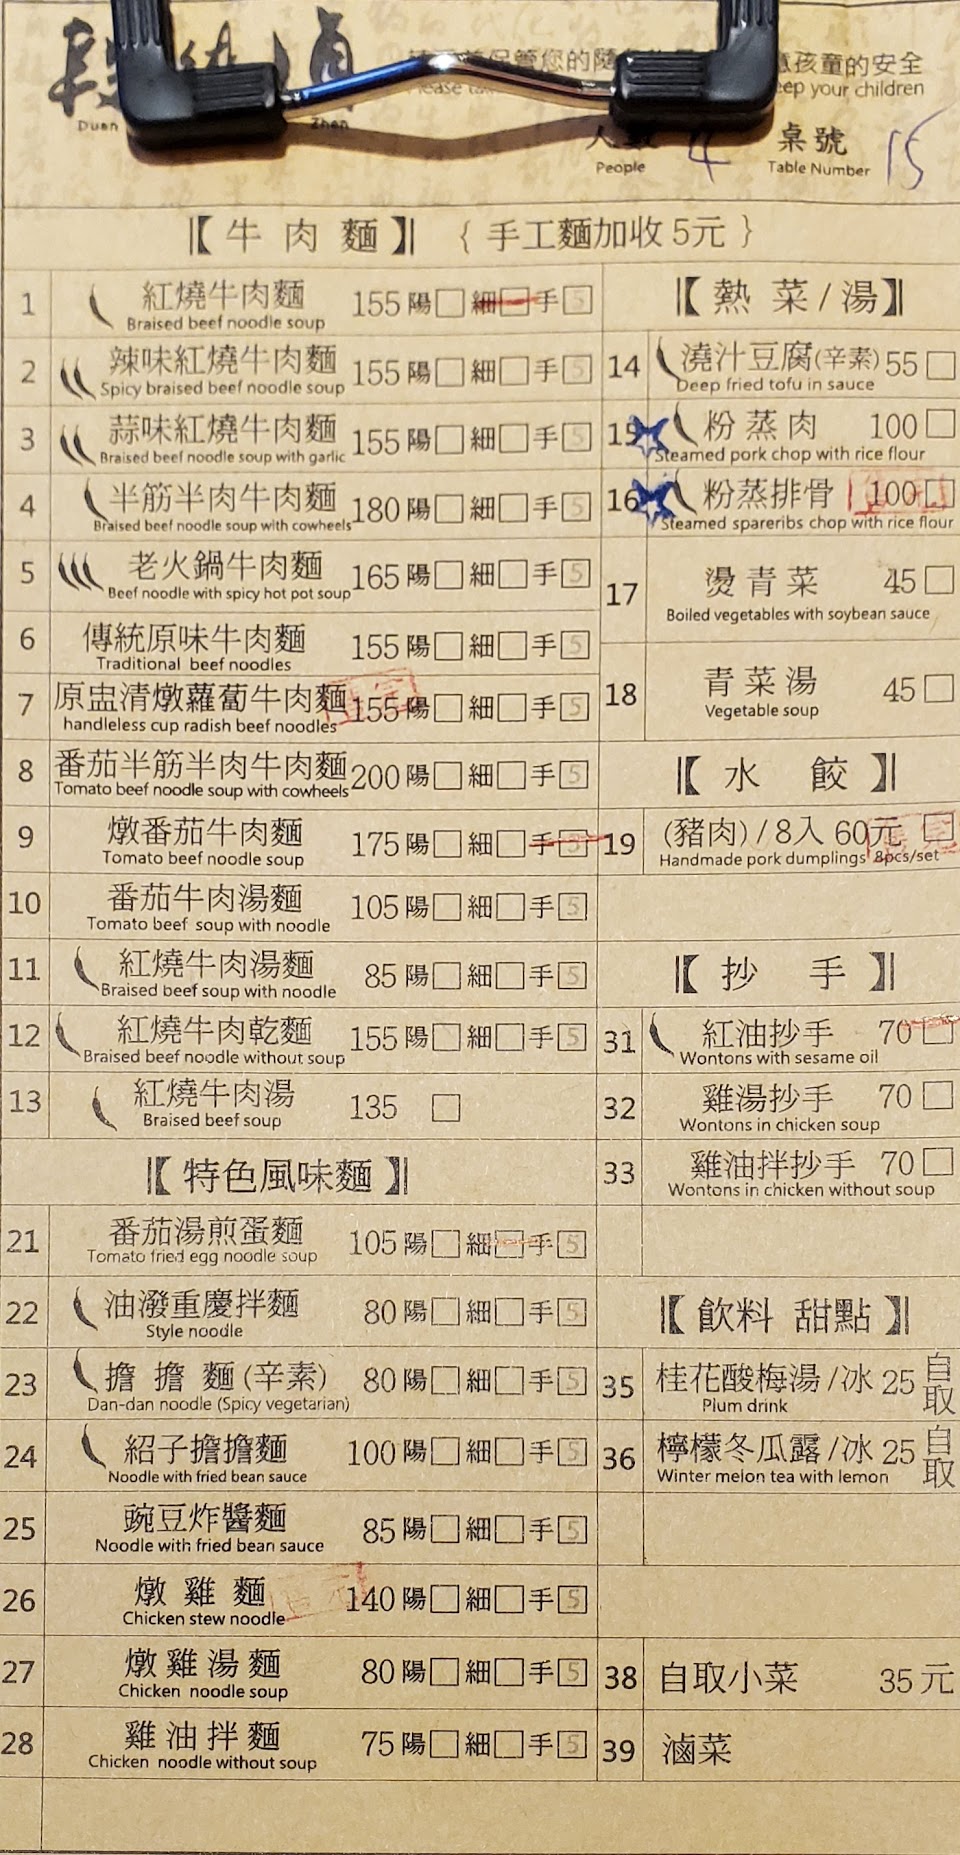 Duan
Zhen
保管您的隨
孩童的安全
Please
eep your children
People 4
桌號 15
Table Number
【牛肉麵】 {手工麵加收5元}
1 紅燒牛肉麵 155 陽□ 細□ 手5
Braised beef noodle soup
2 辣味紅燒牛肉麵 155 陽□ 細□ 手5
Spicy braised beef noodle soup
3 蒜味紅燒牛肉麵 155 陽□ 細□ 手5
Braised beef noodle soup with garlic
4 半筋半肉牛肉麵 180 陽□ 細□ 手5
Braised beef noodle soup with cowheels
5 老火鍋牛肉麵 165 陽□ 細□ 手5
Beef noodle with spicy hot pot soup
6 傳統原味牛肉麵 155 陽□ 細□ 手5
Traditional beef noodles
7 原盅清燉蘿蔔牛肉麵 155 陽□ 細□ 手5
handleless cup radish beef noodles
8 番茄半筋半肉牛肉麵 200 陽□ 細□ 手5
Tomato beef noodle soup with cowheels
9 燉番茄牛肉麵 175 陽□ 細□ 手5
Tomato beef noodle soup
10 番茄牛肉湯麵 105 陽□ 細□ 手5
Tomato beef soup with noodle
11 紅燒牛肉湯麵 85 陽□ 細□ 手5
Braised beef soup with noodle
12 紅燒牛肉乾麵 155 陽□ 細□ 手5
Braised beef noodle without soup
13 紅燒牛肉湯 135 □
Braised beef soup
【特色風味麵】
21 番茄湯煎蛋麵 105 陽□ 細□ 手5
Tomato fried egg noodle soup
22 油潑重慶拌麵 80 陽□ 細□ 手5
Style noodle
23 擔擔麵(辛素) 80 陽□ 細□ 手5
Dan-dan noodle (Spicy vegetarian)
24 紹子擔擔麵 100 陽□ 細□ 手5
Noodle with fried bean sauce
25 豌豆炸醬麵 85 陽□ 細□ 手5
Noodle with fried bean sauce
26 燉雞麵 140 陽□ 細□ 手5
Chicken stew noodle
27 燉雞湯麵 80 陽□ 細□ 手5
Chicken noodle soup
28 雞油拌麵 75 陽□ 細□ 手5
Chicken noodle without soup
【熱菜/湯】
14 澆汁豆腐(辛素) 55 □
Deep fried tofu in sauce
15 粉蒸肉 100 □
Steamed pork chop with rice flour
16 粉蒸排骨 100 □
Steamed spareribs chop with rice flour
17 燙青菜 45 □
Boiled vegetables with soybean sauce
18 青菜湯 45 □
Vegetable soup
【水餃】
19 (豬肉)/8入 60元 □
Handmade pork dumplings 8pcs/set
【抄手】
31 紅油抄手 70 □
Wontons with sesame oil
32 雞湯抄手 70 □
Wontons in chicken soup
33 雞油拌抄手 70 □
Wontons in chicken without soup
【飲料 甜點】
35 桂花酸梅湯/冰 25 自取
Plum drink
36 檸檬冬瓜露/冰 25 自取
Winter melon tea with lemon
38 自取小菜 35元
39 滷菜